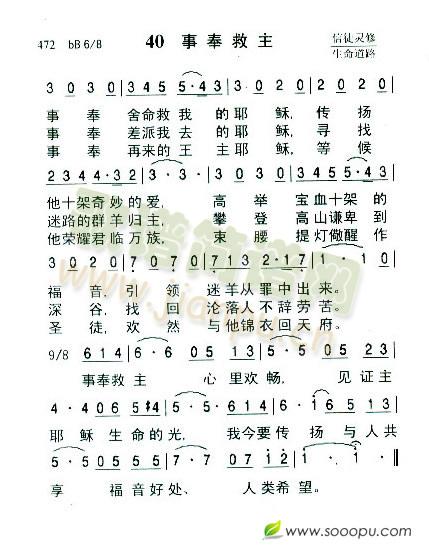 472 bB 6/8 40 事奉救主 信徒灵修
生命道路
3 0 3 0 | 3 4 5 5·4 3 | 5·5· | 2 0 2 0 |
事 奉 舍命救我 的耶 稣, 传 扬
事 奉 差派我去 的耶 稣, 寻 找
事 奉 再来的王 主耶 稣, 等 候
2 3 4 4·3 2 | 3·3· | 3 0 3 0 | 3 4 5 5·4 3 |
他十架奇妙的爱, 高 举 宝血十架的
迷路的群羊归主, 攀 登 高山谦卑到
他荣耀君临万族, 束 腰 提灯儆醒作
福 音, 引 领 迷羊从罪中出来。
深 谷, 找 回 沦落人不辞劳苦。
圣 徒, 欢 然 与他锦衣回天府。
9/8 6 1 4 | 6·6· 0 5 13 | 5·5· 0 5 23 |
事奉救主 心里欢畅, 见证主
耶稣生命的光, 我今要传 扬与人共
享 福音好处、 人类希望。
www.sooopu.com